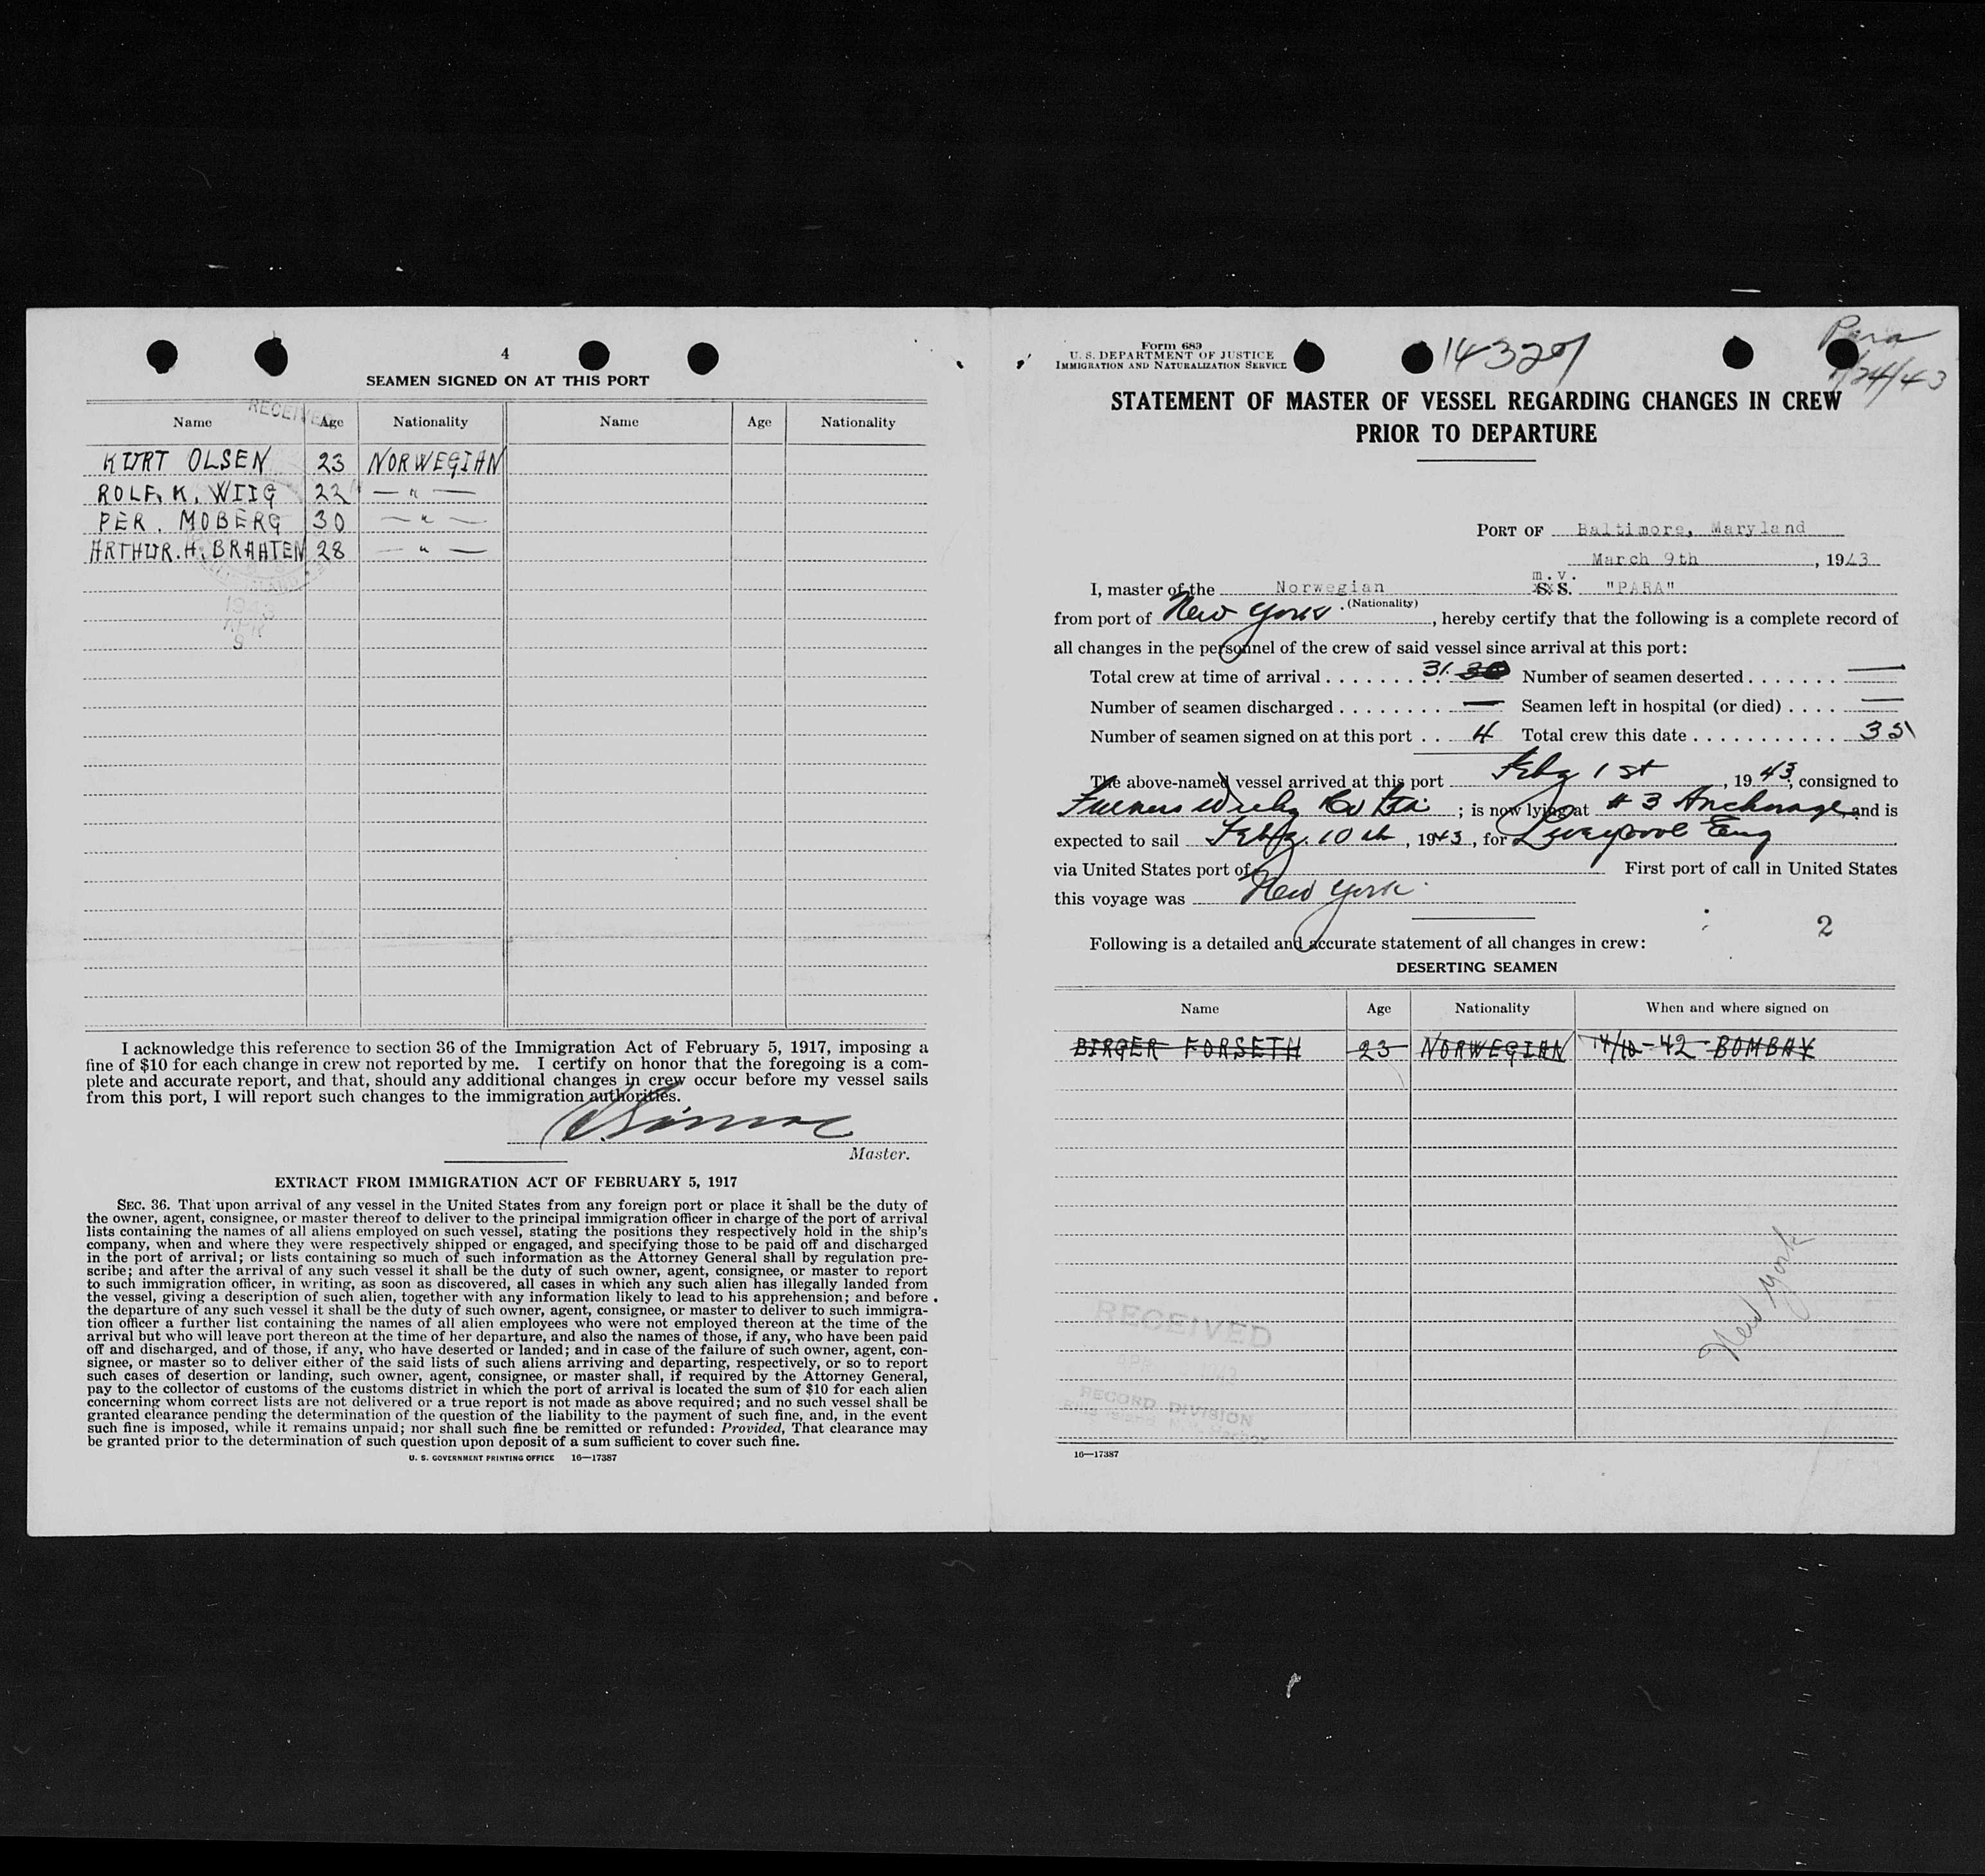 4
SEAMEN SIGNED ON AT THIS PORT
RECEIVED
Name Age Nationality Name Age Nationality
KURT OLSEN 23 NORWEGIAN
ROLF. K. WIIG 22 — " —
PER. MOBERG 30 — " —
ARTHUR. H. BRAATEN 28 — " —
1943
APR
I acknowledge this reference to section 36 of the Immigration Act of February 5, 1917, imposing a
fine of $10 for each change in crew not reported by me. I certify on honor that the foregoing is a com-
plete and accurate report, and that, should any additional changes in crew occur before my vessel sails
from this port, I will report such changes to the immigration authorities.
Master.
EXTRACT FROM IMMIGRATION ACT OF FEBRUARY 5, 1917
SEC. 36. That upon arrival of any vessel in the United States from any foreign port or place it shall be the duty of
the owner, agent, consignee, or master thereof to deliver to the principal immigration officer in charge of the port of arrival
lists containing the names of all aliens employed on such vessel, stating the positions they respectively hold in the ship's
company, when and where they were respectively shipped or engaged, and specifying those to be paid off and discharged
in the port of arrival; or lists containing so much of such information as the Attorney General shall by regulation pre-
scribe; and after the arrival of any such vessel it shall be the duty of such owner, agent, consignee, or master to report
to such immigration officer, in writing, as soon as discovered, all cases in which any such alien has illegally landed from
the vessel, giving a description of such alien, together with any information likely to lead to his apprehension; and before
the departure of any such vessel it shall be the duty of such owner, agent, consignee, or master to deliver to such immigra-
tion officer a further list containing the names of all alien employees who were not employed thereon at the time of the
arrival but who will leave port thereon at the time of her departure, and also the names of those, if any, who have been paid
off and discharged, and of those, if any, who have deserted or landed; and in case of the failure of such owner, agent, con-
signee, or master so to deliver either of the said lists of such aliens arriving and departing, respectively, or so to report
such cases of desertion or landing, such owner, agent, consignee, or master shall, if required by the Attorney General,
pay to the collector of customs of the customs district in which the port of arrival is located the sum of $10 for each alien
concerning whom correct lists are not delivered or a true report is not made as above required; and no such vessel shall be
granted clearance pending the determination of the question of the liability to the payment of such fine, and, in the event
such fine is imposed, while it remains unpaid; nor shall such fine be remitted or refunded: Provided, That clearance may
be granted prior to the determination of such question upon deposit of a sum sufficient to cover such fine.
U. S. GOVERNMENT PRINTING OFFICE 16—17387
Form 689
U. S. DEPARTMENT OF JUSTICE
IMMIGRATION AND NATURALIZATION SERVICE
Para
/24/43
STATEMENT OF MASTER OF VESSEL REGARDING CHANGES IN CREW
PRIOR TO DEPARTURE
PORT OF Baltimore, Maryland
March 9th, 1943
I, master of the Norwegian m.v. S.S. "PARA"
(Nationality)
from port of New York, hereby certify that the following is a complete record of
all changes in the personnel of the crew of said vessel since arrival at this port:
Total crew at time of arrival 31. 30 Number of seamen deserted —
Number of seamen discharged — Seamen left in hospital (or died) —
Number of seamen signed on at this port 4 Total crew this date 35
The above-named vessel arrived at this port Feby 1st, 1943, consigned to
Furness Withy Co Ltd; is now lying at # 3 Anchorage and is
expected to sail Feby. 10th, 1943, for Liverpool Eng
via United States port of First port of call in United States
this voyage was New York.
2
Following is a detailed and accurate statement of all changes in crew:
DESERTING SEAMEN
Name Age Nationality When and where signed on
BIRGER FORSETH 23 NORWEGIAN 14/10-42 BOMBAY
New York
RECEIVED
RECORD DIVISION
16—17387